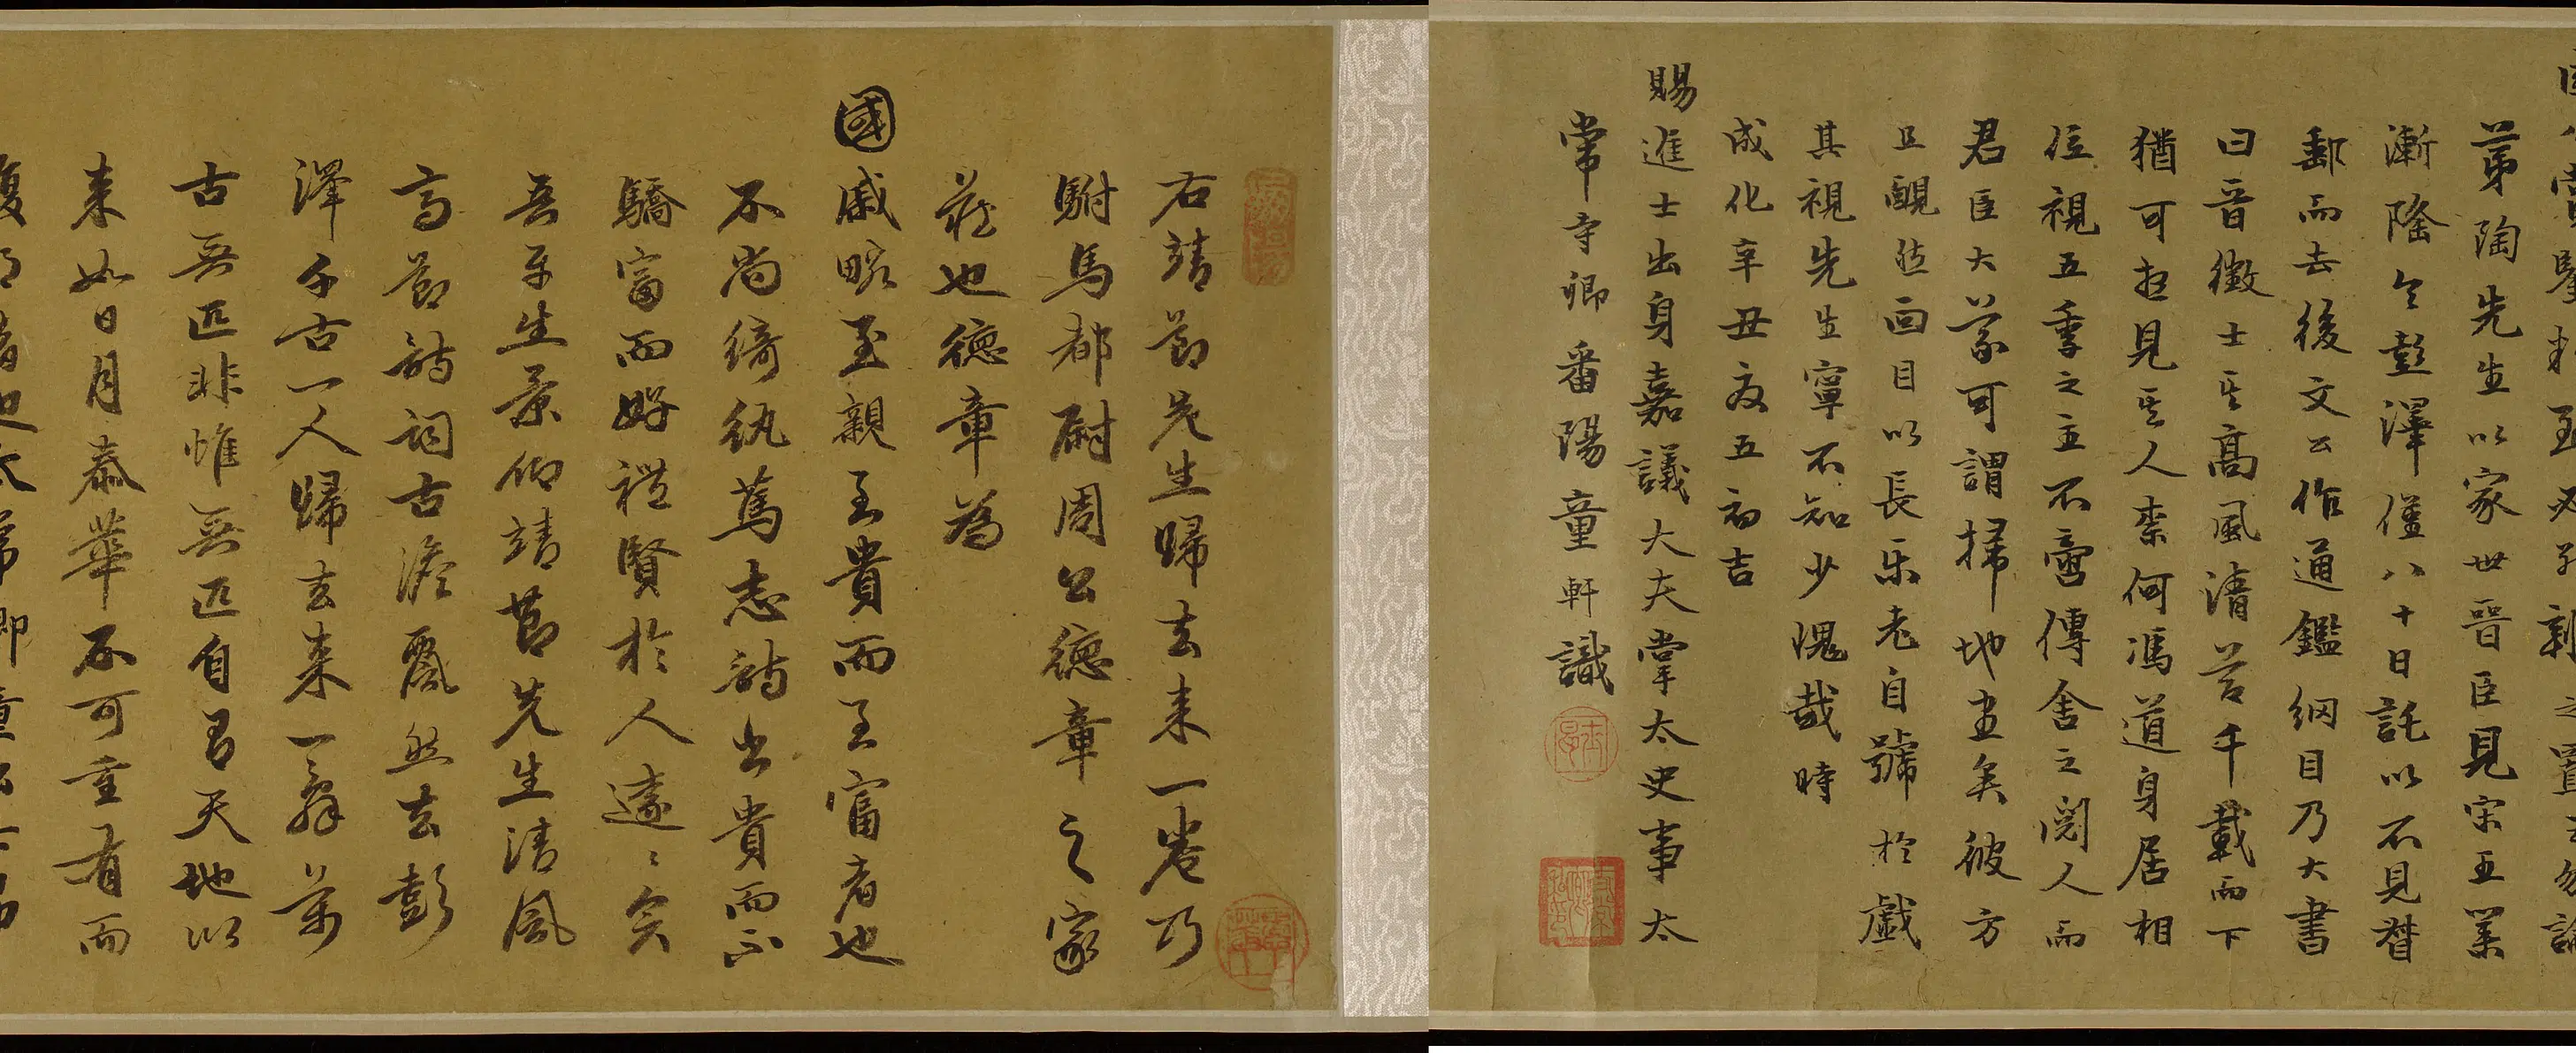 第陶先生以家世晉臣見宋王業
漸隆令彭澤僅八十日託以不見督
郵而去後文公作通鑑綱目乃大書
曰晉徵士其高風清苦千載而下
猶可想見其人柰何馮道身居相
位視五季之主不啻傳舍之閱人而
君臣大義可謂掃地盡矣彼方
且靦然面目以長乐老自號於戲
其視先生寧不知少愧哉時
成化辛丑夏五初吉
賜進士出身嘉議大夫掌太史事太
常寺卿番陽童軒識
右靖節先生歸去来一卷乃
駙馬都尉周公德章之家
藏也德章為
國戚畹至親至貴而至富者也
不尚綺紈篤志詩書貴而不
驕富而好禮賢於人遠遠矣
吾平生景仰靖節先生清風
高節詩詞古澹飄然去彭
澤千古一人歸去来一辭萬
古無匹非惟無匹自有天地以
来如日月泰華不可重有而